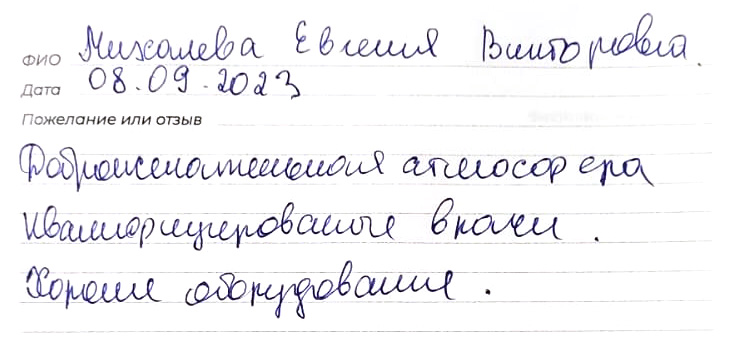 ФИО Михалева Евгения Викторовна.
Дата 08.09.2023
Пожелание или отзыв
Доброжелательная атмосфера
Квалифицированные врачи.
Хорошее оборудование.